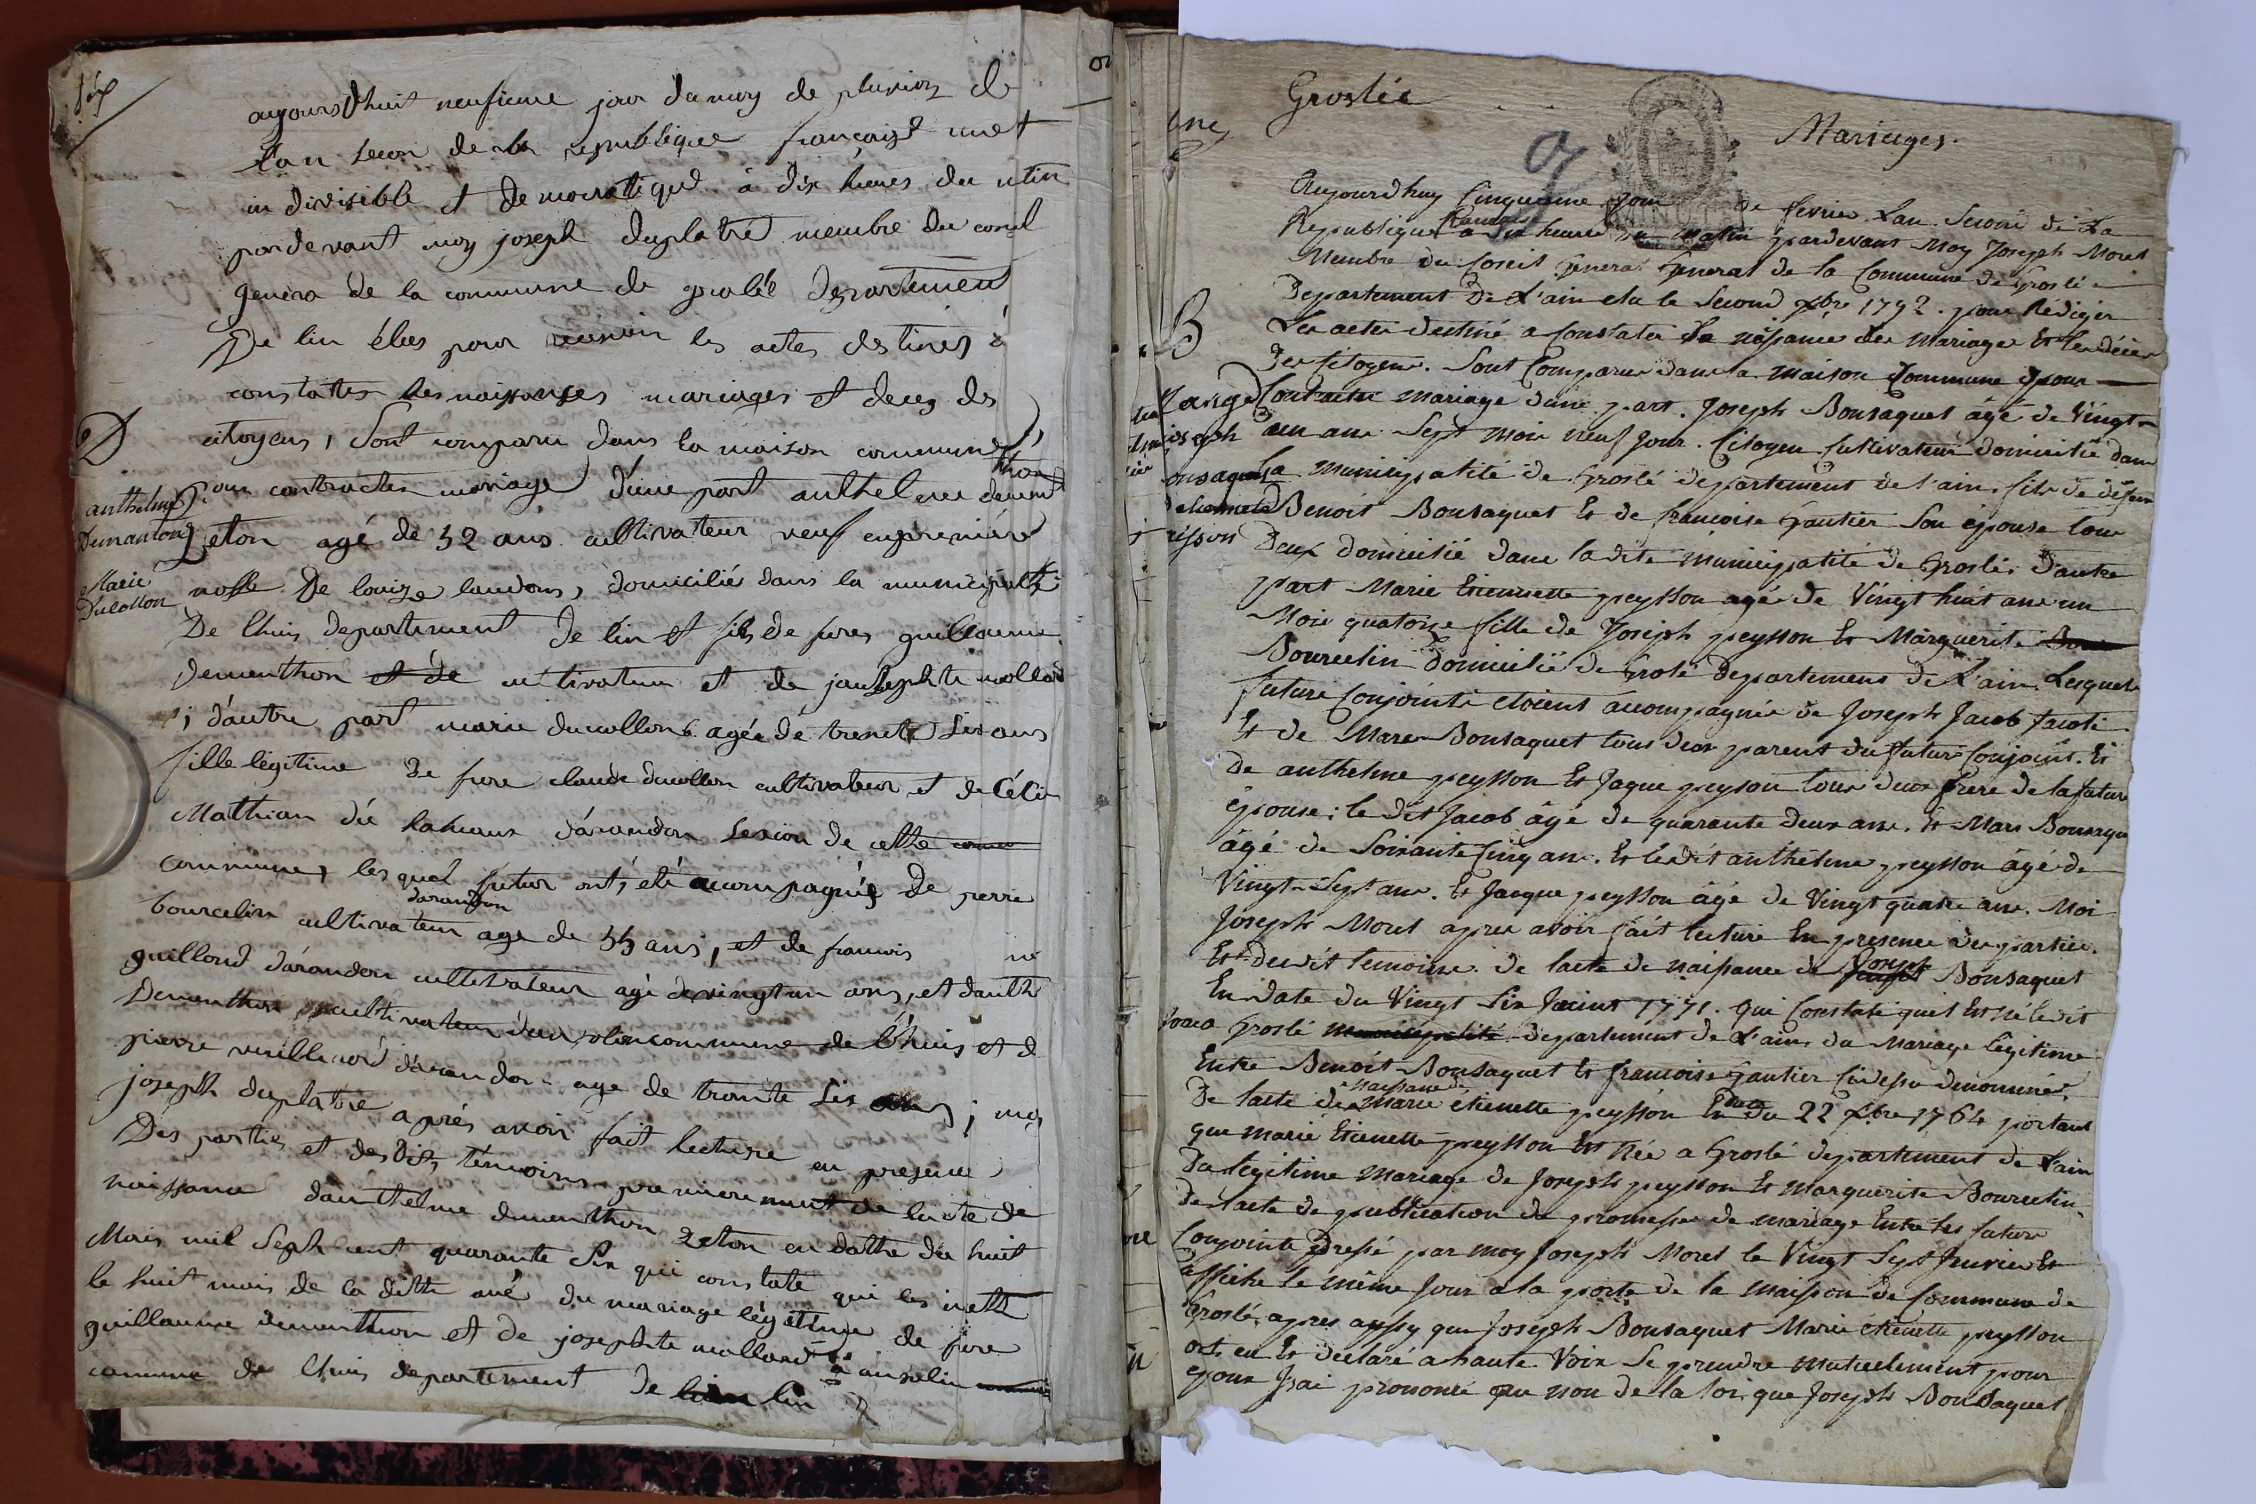 six
aujourdhuit neufieme jour du moy de pluvioz de
lan secon de la republique françaize une et
in divisible et democratique à dix heures du mtin
pardevant moy joseph duplatre membre du consil
genera de la commune de grolée departement
De lin élus pour recevoir les actes destines à
constater les naissances mariages et deces des
citoyens, Sont comparu dans la maison commune
pour contracter mariage d'une part anthelme dement
thon
Zeton agé de 52 ans cultivateur veuf en premiere
nosse De louize laudons, domicilié dans la municipalité
De lhuis departement de lin et fils de fures guillaume
dementhon et de cultivateur et de jausephte mollard
; d'autre part marie ducollons agée de trente six ans
fille legitime de fure claude ducollon cultivateur et de Célie
Mathian dé lahaans dárandon sexion de cette comm
commune, les quel futur ont, été acompagnés De pierre
bourcelin cultivateur darandon age de 55 ans, et de francois
guillond dárandon cultivateur agé de vingt un ans, et danth
Dementhon, cultivateur dans commune de lhuis et d
pierre darandon age de trante six ans ; moy
joseph duplatre aprés avoir fait lecture en presence
Des parties et desdits témoins premierement de lacte de
naissance danthelme dementhon zeton en dathe du huit
Mais mil Sept cent quarante six qui constate qui les nett
le huit mais de la ditte ané du mariage légétime de fure
guillaume dementhon et de josephte mollard
comune de lhuis departement de lin
anthelme
Dumanton
Marie
Ducollon
Groslée
Mariages.
Aujourdhuy Cinquieme jour de fevrier Lan Second de La
Republique francaise a six heures du matin pardevant Moy Joseph Moret
Membre du Conseil General General de la Commune de Groslée
Departement De L'ain elu le Second xbre 1792. pour Rédiger
Les actes destiné a Constater la naissance des Mariage Et les décès
Des Citoyens. Sont Comparu dans la maison Commune pour
Contracter mariage dune part. Joseph Bonsaquet âgé de Vingt
un ans Sept Mois neuf Jour. Citoyen Cultivateur domicilié dans
La municipalité de Groslé departement de l'ain. fils de défun
Benoit Bonsaquet Et de francoise Gautier Son épouse tous
Deux domicilié dans ladite municipalité de Groslé. D'autre
part Marie Etiennette peysson agé de Vingt huit ans un
Mois quatorze fille de Joseph peysson Et Marguerite
Bourcelin domicilié de Groslé departement de L'ain. Lesquels
future Conjointe etoient acompagnée de Joseph Jacob
Et de Marc Bonsaquet tous deux parent du future Conjoint. Et
De anthelme peysson Et Jaque peyson tous deux frere de la future
épouse; le dit Jacob âgé de quarante deux ans. Et Marc Bonsaque
âgé de Soixante Cinq ans. Et ledit anthelme peysson âgé de
Vingt-Sept ans. Et Jacque peysson âgé de Vingt quatre ans. Moi
Joseph Moret apres avoir fait lecture En presence des parties.
Et desdit temoins. de lacte de naissance de Joseph Bonsaquet
En date du Vingt Six 1771. qui Constate quil Est né ledit
Groslé municipalité departement de L'ain, du Mariage Légitime
Entre Benoit Bonsaquet Et francoise Gautier Cidessu denommé.
De lacte de naissance de Marie étienette peysson En date du 22 xbre 1764 portant
que marie Etienette peysson Est Née a Groslé departement de Lain
Du légitime Mariage de Joseph peysson Et Marguerite Bourcelin.
De lacte de publication de promesse de mariage Entre les future
Conjointe dressé par moy Joseph Moret le Vingt Sept Janvier Et
affiche le même Jour a la porte de la Maison de Commune de
Groslé. apres aussy que Joseph Bonsaquet Marie étienette peysson
ont eu Et declaré a haute Voix Se prendre mutuellement pour
epoux J'ai prononcé au non de la loi, que Joseph Bonsaquet